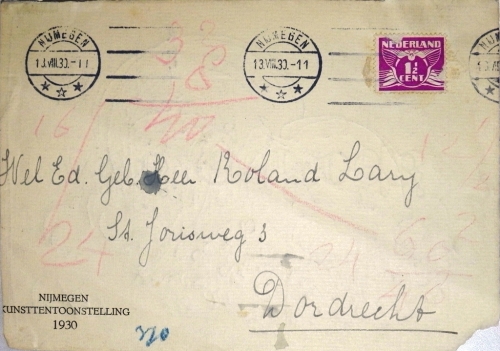 NIJMEGEN
13.VIII.30.-11
NIJMEGEN
13.VIII.30.-11
NEDERLAND
1½
CENT
Wel Ed. Geb. Heer Roland Lary
St. Jorisweg 3
Dordrecht
16
24
24
NIJMEGEN
KUNSTTENTOONSTELLING
1930